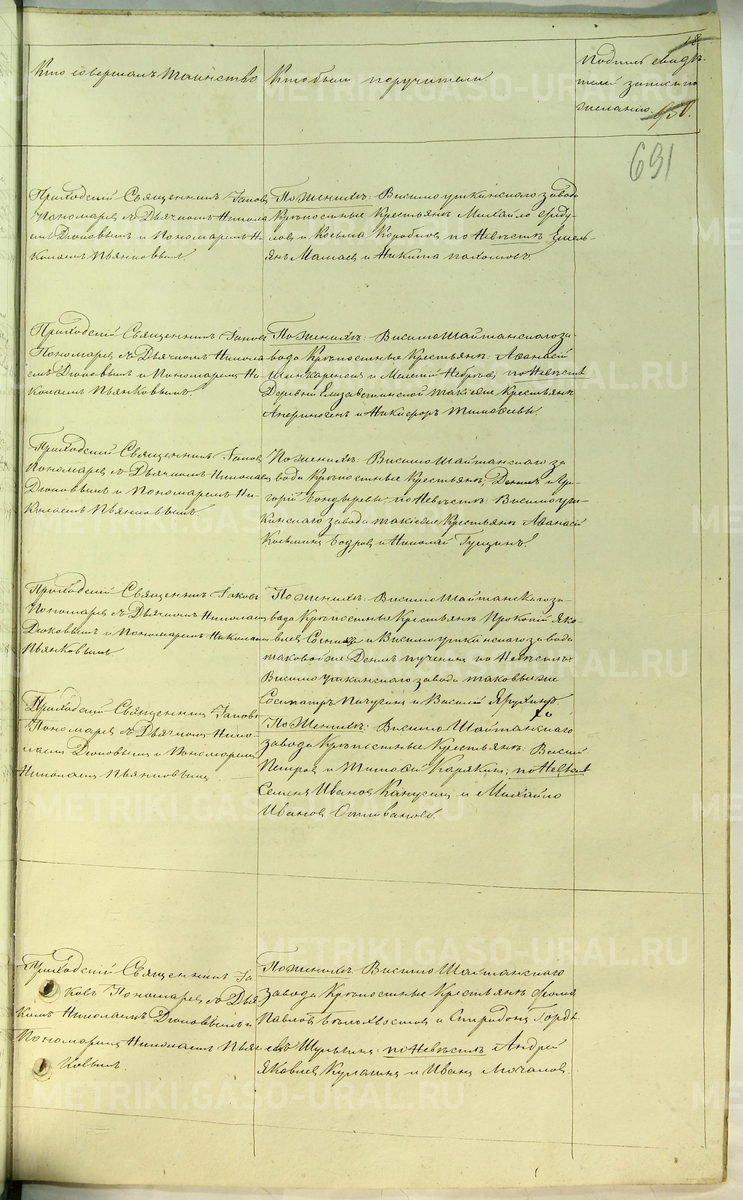 Кто совершалъ таинство
Кто были поручители.
Подпись свидѣ-
телей записи по
желанію.
691
Приходскій Священникъ Іаковъ
Пономаревъ съ Дьячкомъ Никола
емъ Дюковымъ и Пономаремъ Ни
колаемъ Пьянковымъ.
По женихѣ: Висимоуткинскаго завода
Крѣпостные Крестьяне Михайло
и Косьма Коробковъ по невѣстѣ Емель-
янъ Мамаевъ и Никита Пахомовъ.
Приходскій Священникъ Іаковъ
Пономаревъ съ Дьячкомъ Никола
емъ Дюковымъ и Пономаремъ Ни
колаемъ Пьянковымъ.
По женихѣ: Висимо Шайтанскаго за-
вода Крѣпостные Крестьяне: Афанасій
и по невѣстѣ
Деревни Елизаветинской таковые Крестьяне
и Никифоръ Тимофеевы.
Приходскій Священникъ Іаковъ
Пономаревъ съ Дьячкомъ Николаемъ
Дюковымъ и Пономаремъ Ни-
колаемъ Пьянковымъ.
По женихѣ: Висимо Шайтанскаго за
вода Крѣпостные Крестьяне Денисъ и Гри-
горій Бондыревы по невѣстѣ: Висимоут-
кинскаго завода таковые Крестьяне Афанасій
Косьминъ Бодровъ и Николай Гущинъ.
Приходскій Священникъ Іаковъ
Пономаревъ съ Дьячкомъ Николаемъ
Дюковымъ и Пономаремъ Николаемъ
Пьянковымъ
По женихѣ: Висимо Шайтанскаго за
вода Крѣпостные Крестьяне Прокопій Яко-
влевъ и Висимоуткинскаго завода
таковой же по невѣстѣ:
Висимоуткинскаго завода таковые же
Пичугинъ и Василій
Приходскій Священникъ Іаковъ
Пономаревъ съ Дьячкомъ Нико-
лаемъ Дюковымъ и Пономаремъ
Николаемъ Пьянковымъ
По женихѣ: Висимо Шайтанскаго
завода Крѣпостные Крестьяне:
Петровъ и Тимофей Карякинъ; по невѣстѣ
Семенъ Ивановъ и Михайло
Ивановъ Селивановъ.
Приходскій Священникъ Іа
ковъ Пономаревъ съ Дья
комъ Николаемъ Дюковымъ и
Пономаремъ Николаемъ Пьян
ковымъ
По женихѣ Висимо Шайтанскаго
завода Крѣпостные Крестьяне Фома
Павловъ Бѣлохвостовъ и Спиридонъ Гордѣ-
евъ по невѣстѣ Андрей
Яковлевъ Кулагинъ и Иванъ Мочаловъ.
METRIKI.GASO-URAL.RU